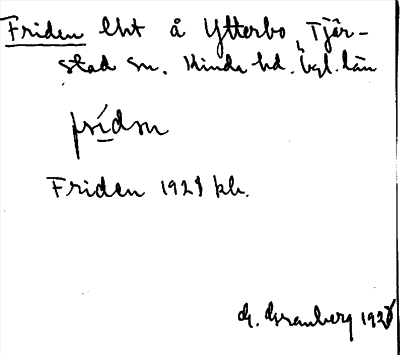 Friden lht å Ytterbo, Tjär-
stad sn. Kinda hd. Ögl. län
frídn
Friden 1928 kb.
G. Granberg 1928